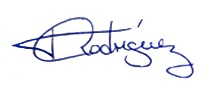 Rodríguez